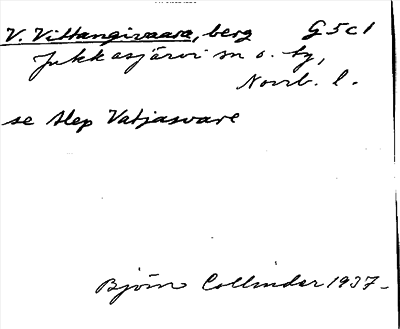 V. Vittangivaara, berg G5c1
Jukkasjärvi sn o. tg,
Norrb. l.
se Alep Vatjasvare
Björn Collinder 1937